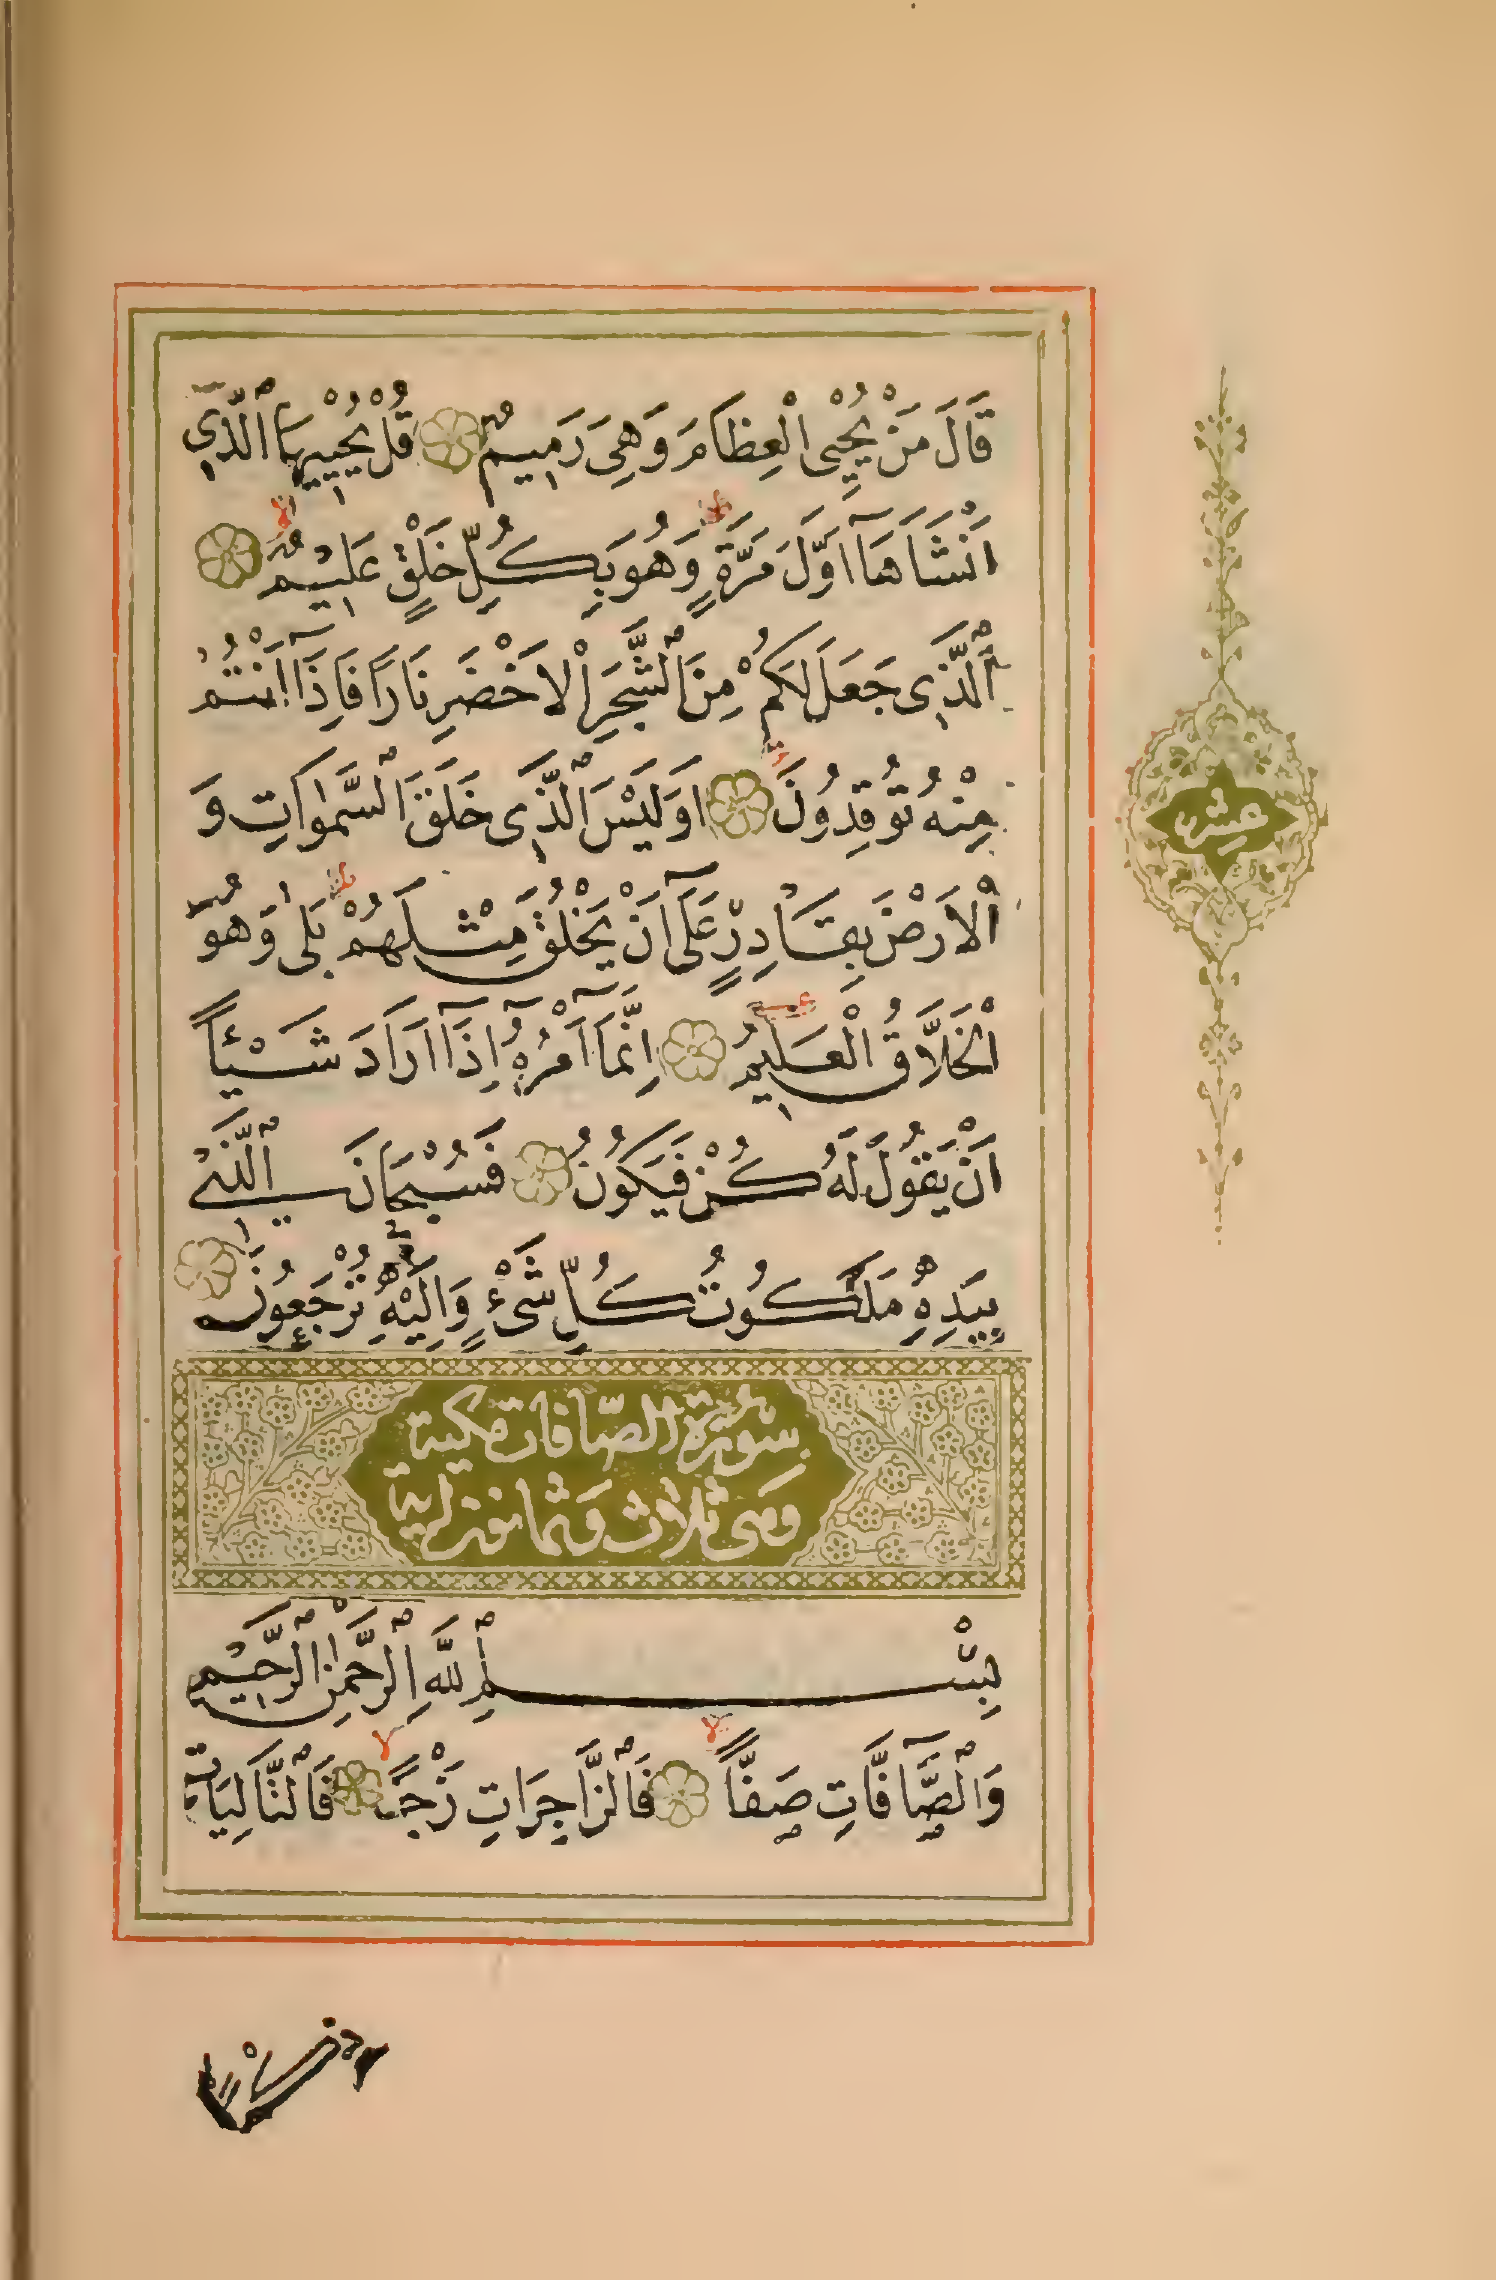 قَالَ مَنْ يُحْيِى الْعِظَامَ وَهِىَ رَمِيمٌ قُلْ يُحْيِيهَا الَّذِي
اَنْشَاَهَآ اَوَّلَ مَرَّةٍ وَهُوَ بِكُلِّ خَلْقٍ عَلِيْمٌ
اَلَّذِى جَعَلَ لَكُمْ مِنَ الشَّجَرِ الْاَخْضَرِ نَارًا فَاِذَآ اَنْتُمْ
مِنْهُ تُوقِدُونَ اَوَلَيْسَ الَّذِى خَلَقَ السَّمٰوَاتِ وَ
الْاَرْضَ بِقَادِرٍ عَلَى اَنْ يَخْلُقَ مِثْلَهُمْ بَلٰى وَهُوَ
الْخَلَّاقُ الْعَلِيمُ اِنَّمَآ اَمْرُهُ اِذَآ اَرَادَ شَيْئًا
اَنْ يَقُولَ لَهُ كُنْ فَيَكُونُ فَسُبْحَانَ الَّذِي
بِيَدِهِ مَلَكُوتُ كُلِّ شَىْءٍ وَاِلَيْهِ تُرْجَعُونَ
سورة الصافات مكية
وهى ثلاث وثمانون اية
بِسْمِ اللّٰهِ الرَّحْمٰنِ الرَّحِيْمِ
وَالصَّآفَّاتِ صَفًّا فَالزَّاجِرَاتِ زَجْرًا فَالتَّالِيَاتِ
عشر